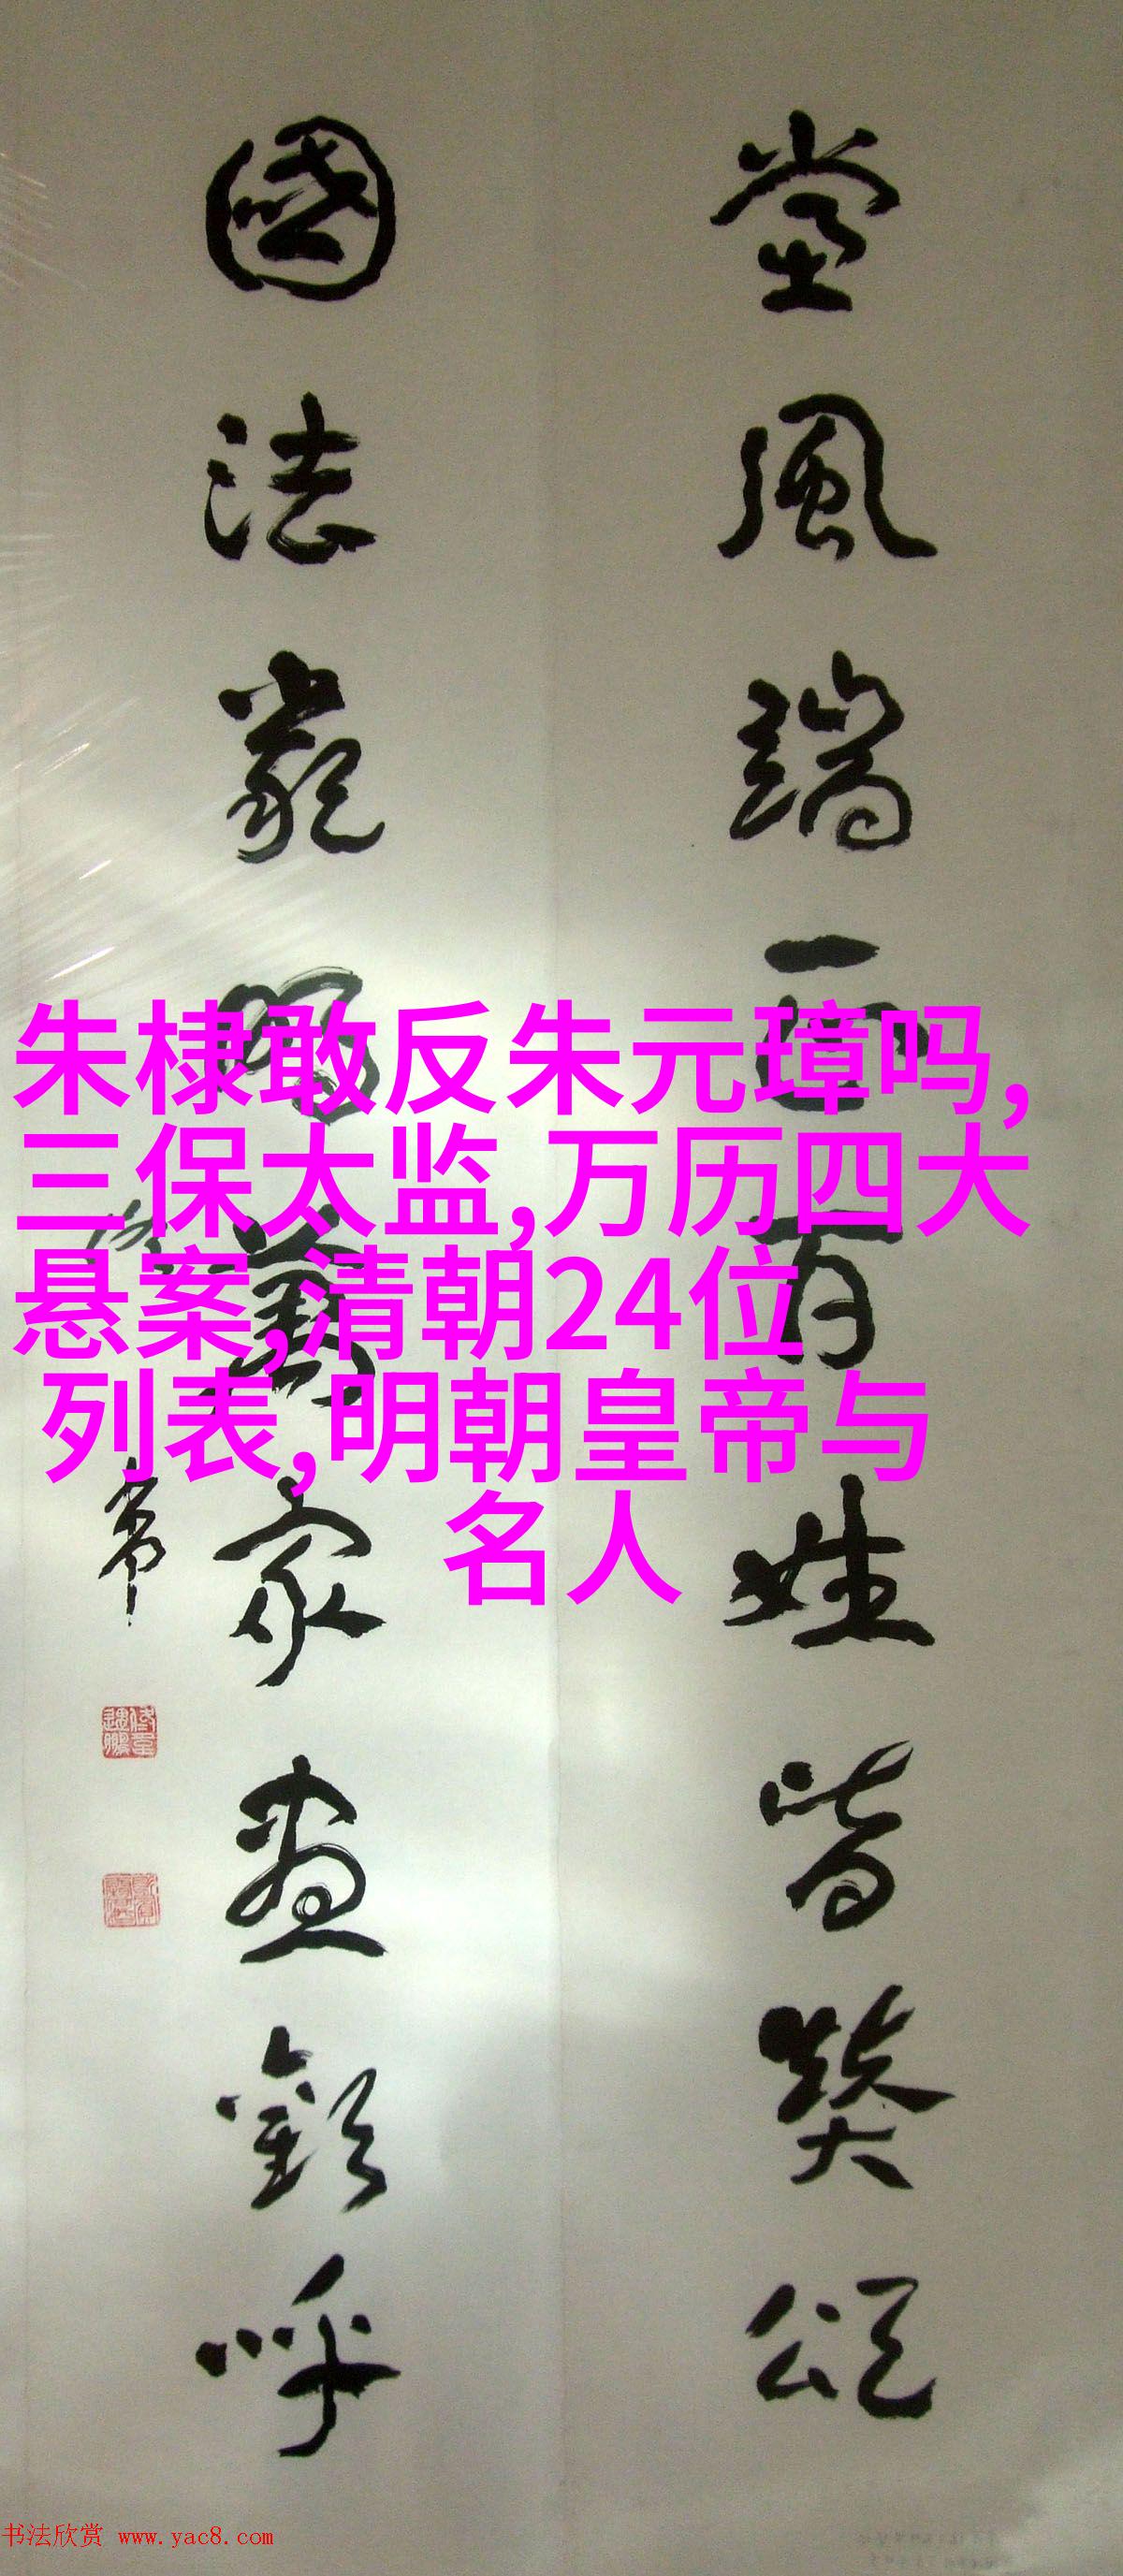 党風端正百姓皆奬頌
國法嚴明萬家盡歡呼
朱棣敢反朱元璋吗,
三保太监,万历四大
悬案,清朝24位
列表,明朝皇帝与
名人
书法欣赏 www.yac8.com